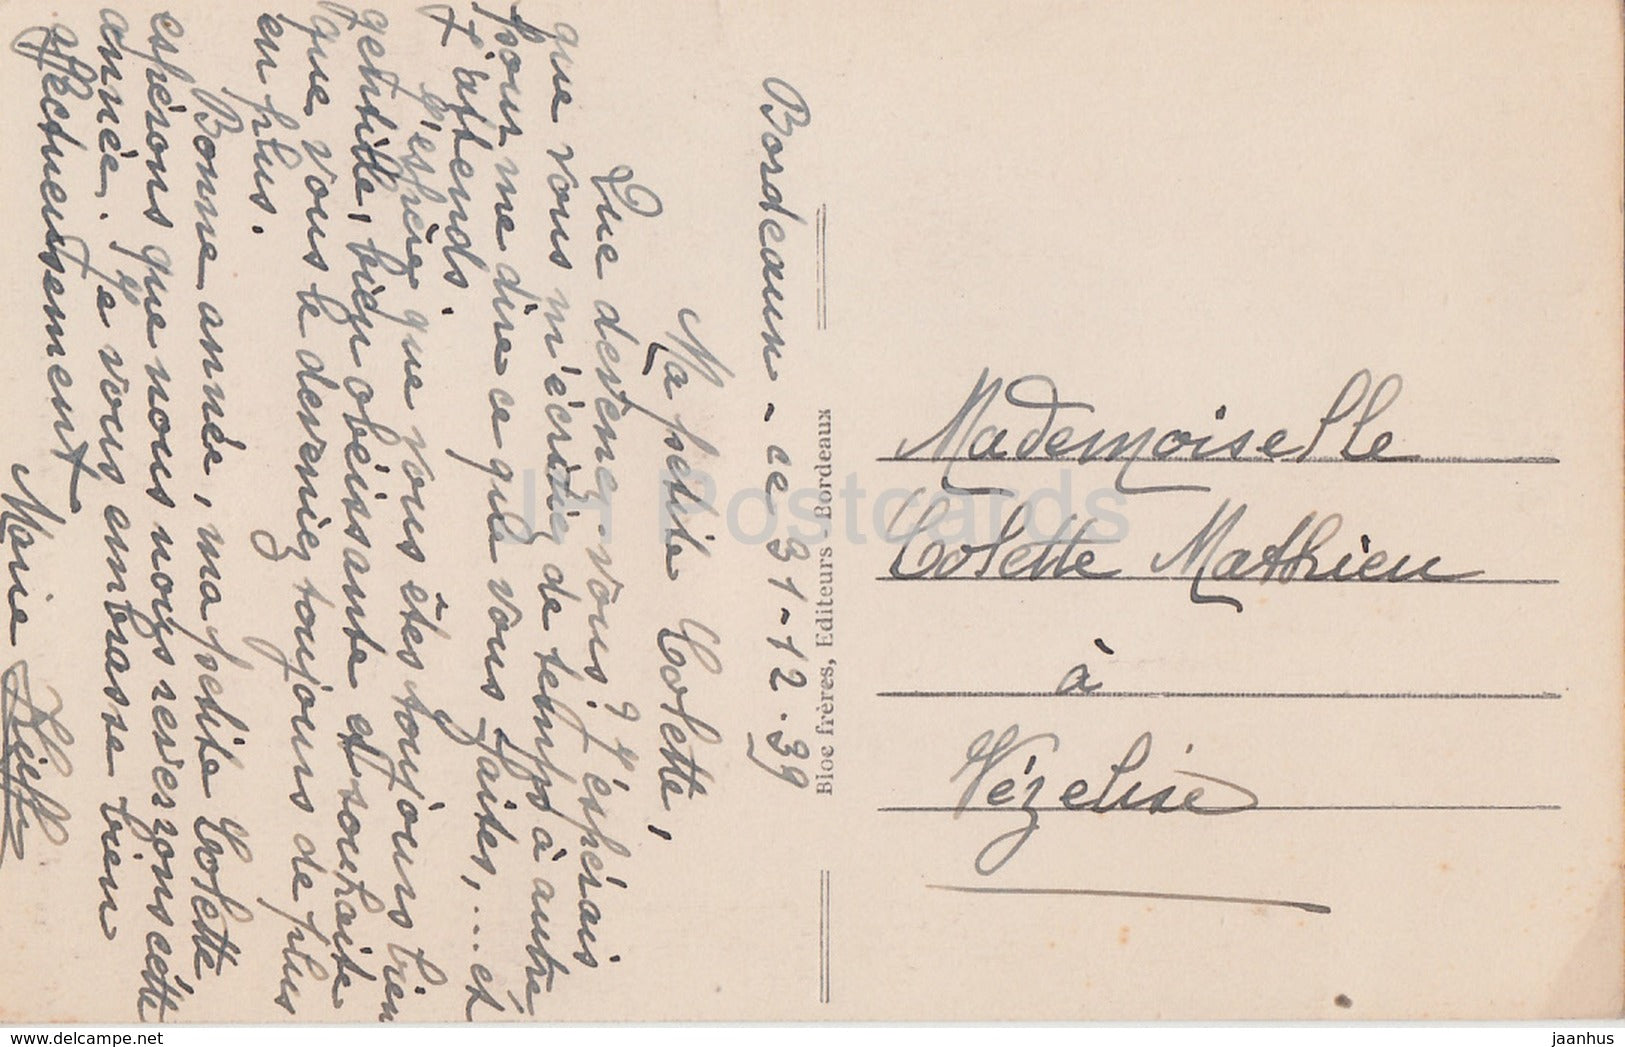 Bordeaux - le 31-12-39
Ma petite Colette,
Que devenez-vous ? J'éspérais
que vous m'écririez de temps à autre
pour me dire ce que vous faites,....et
j'attends.
J'espère que vous êtes toujours bien
gentille, bien obéissante et souhaite
que vous le deveniez toujours de plus
en plus.
Bonne année, ma petite Colette
espérons que nous nous reverrons cette
année. Je vous embrasse bien
affectueusement
Marie
Bloc frères, Editeurs - Bordeaux
Mademoiselle
Colette Mathieu
à
Vézelise
JH Postcards
www.delcampe.net
jaanhus